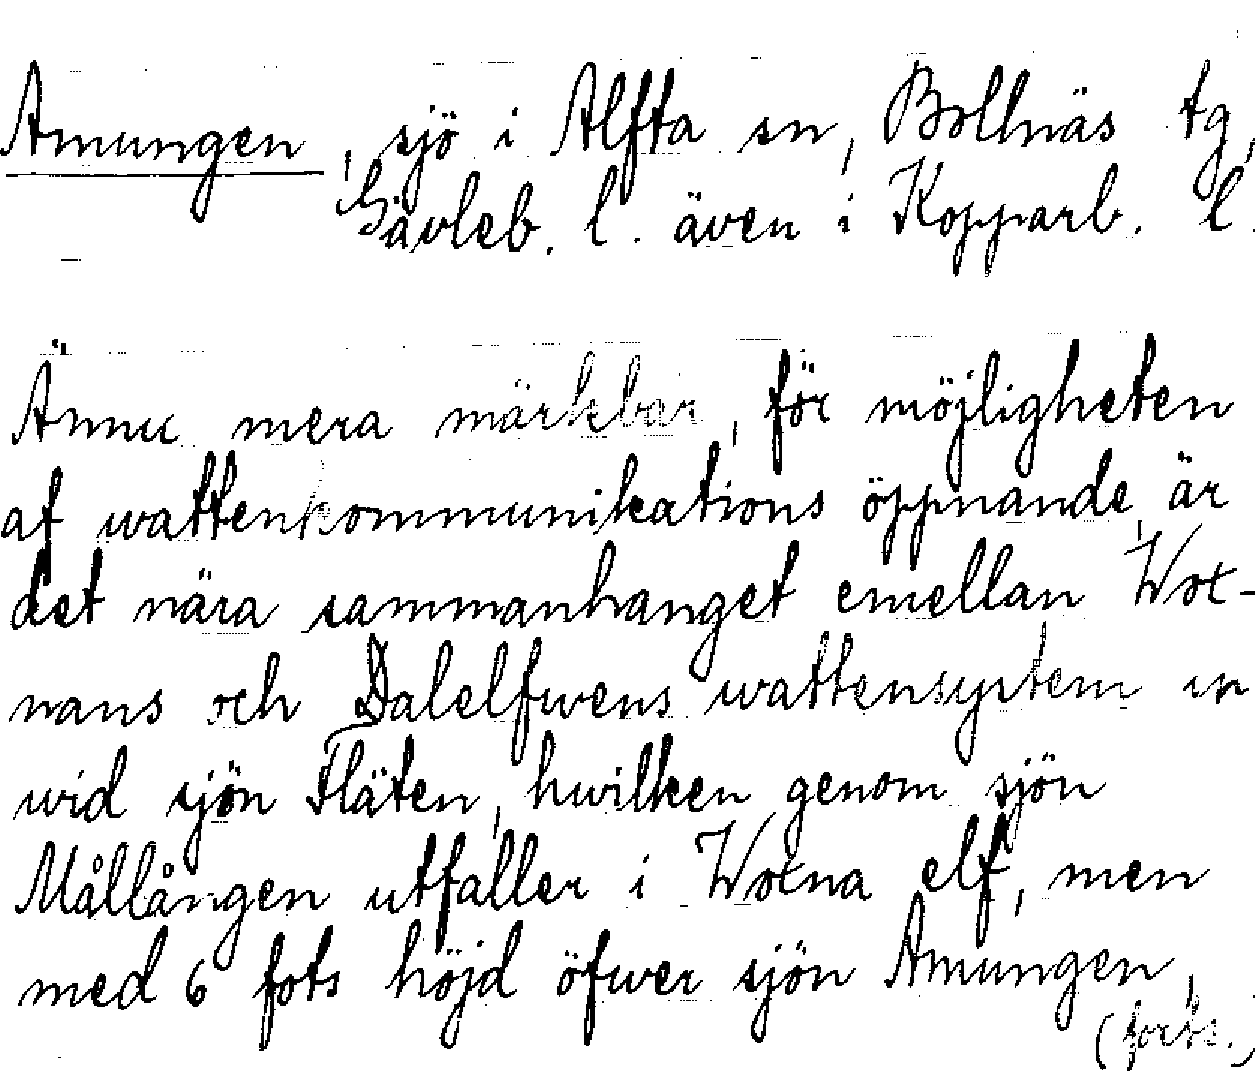 Amungen, sjö i Alfta sn, Bollnäs tg,
Gävleb. l. även i Kopparb. l.
Ännu mera märkbar, för möjligheten
af wattenkommunikations öppnande, är
det nära sammanhanget emellan Wox-
nans och Dalelfwens wattensystem
wid sjön Fläten, hwilken genom sjön
Mållången utfaller i Woxna elf, men
med 6 fots höjd öfwer sjön Amungen,
(forts.)